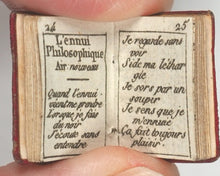 24
L'ennui
Philosophique
Air nouveau
Quand l'ennui
vient me prendre
Lorsque je fais
du noir
J'écoute sans
entendre
25
Je regarde sans
voir
Si de ma lethar
gie
Je sors par un
soupir
Je sens que je
m'ennuie
Ça fait toujours
plaisir